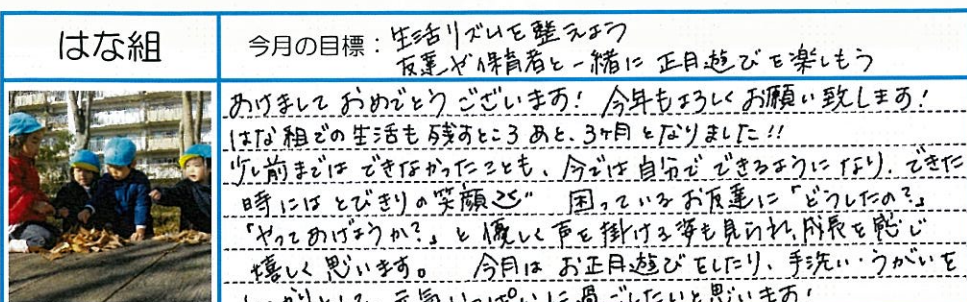 はな組
今月の目標：生活リズムを整えよう
友達や保育者と一緒に正月遊びを楽しもう
あけましておめでとうございます！ 今年もよろしくお願い致します！
はな組での生活も残すところあと、3ヶ月となりました!!
少し前まではできなかったことも、今では自分でできるようになり、できた
時にはとびきりの笑顔 困っているお友達に「どうしたの？」
「やってあげようか？」と優しく声を掛ける姿も見られ、成長を感じ
嬉しく思います。 今月はお正月遊びをしたり、手洗い・うがいを
しっかりとして、元気いっぱいに過ごしたいと思います！